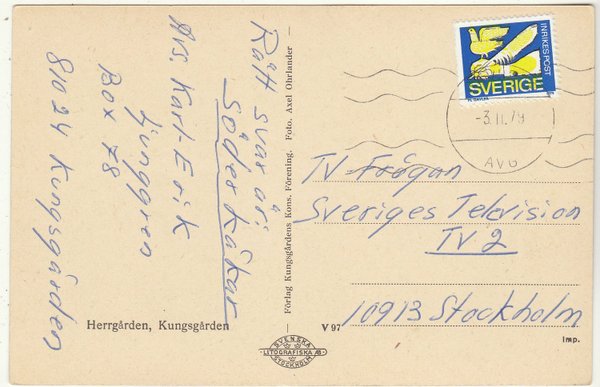 Rätt svar är:
Söderkåkar
Avs. Karl-Erik
Ljunggren
Box 78
81024 Kungsgården
Herrgården, Kungsgården
Förlag Kungsgårdens Kons. Förening. Foto. Axel Ohrlander –
V 97
SVENSKA
LITOGRAFISKA AB
STOCKHOLM
INRIKES POST
SVERIGE
-3.11.79
AVG
TV Frågan
Sveriges Television
TV 2
10913 Stockholm
Imp.